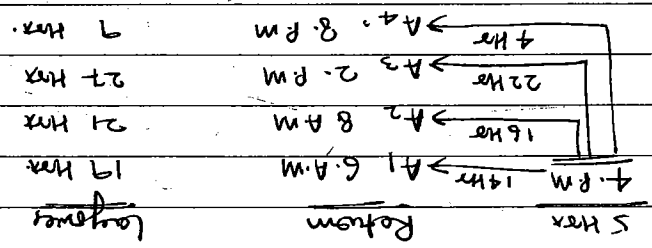 5 Hrs Return Layover
4. P.M 14Hr A1 6. A.M 19 Hrs
16 Hr A2 8 AM 21 Hrs
22 Hr A3 2. P.M 27 Hrs
4 Hr A4. 8. P.M 9 Hrs.